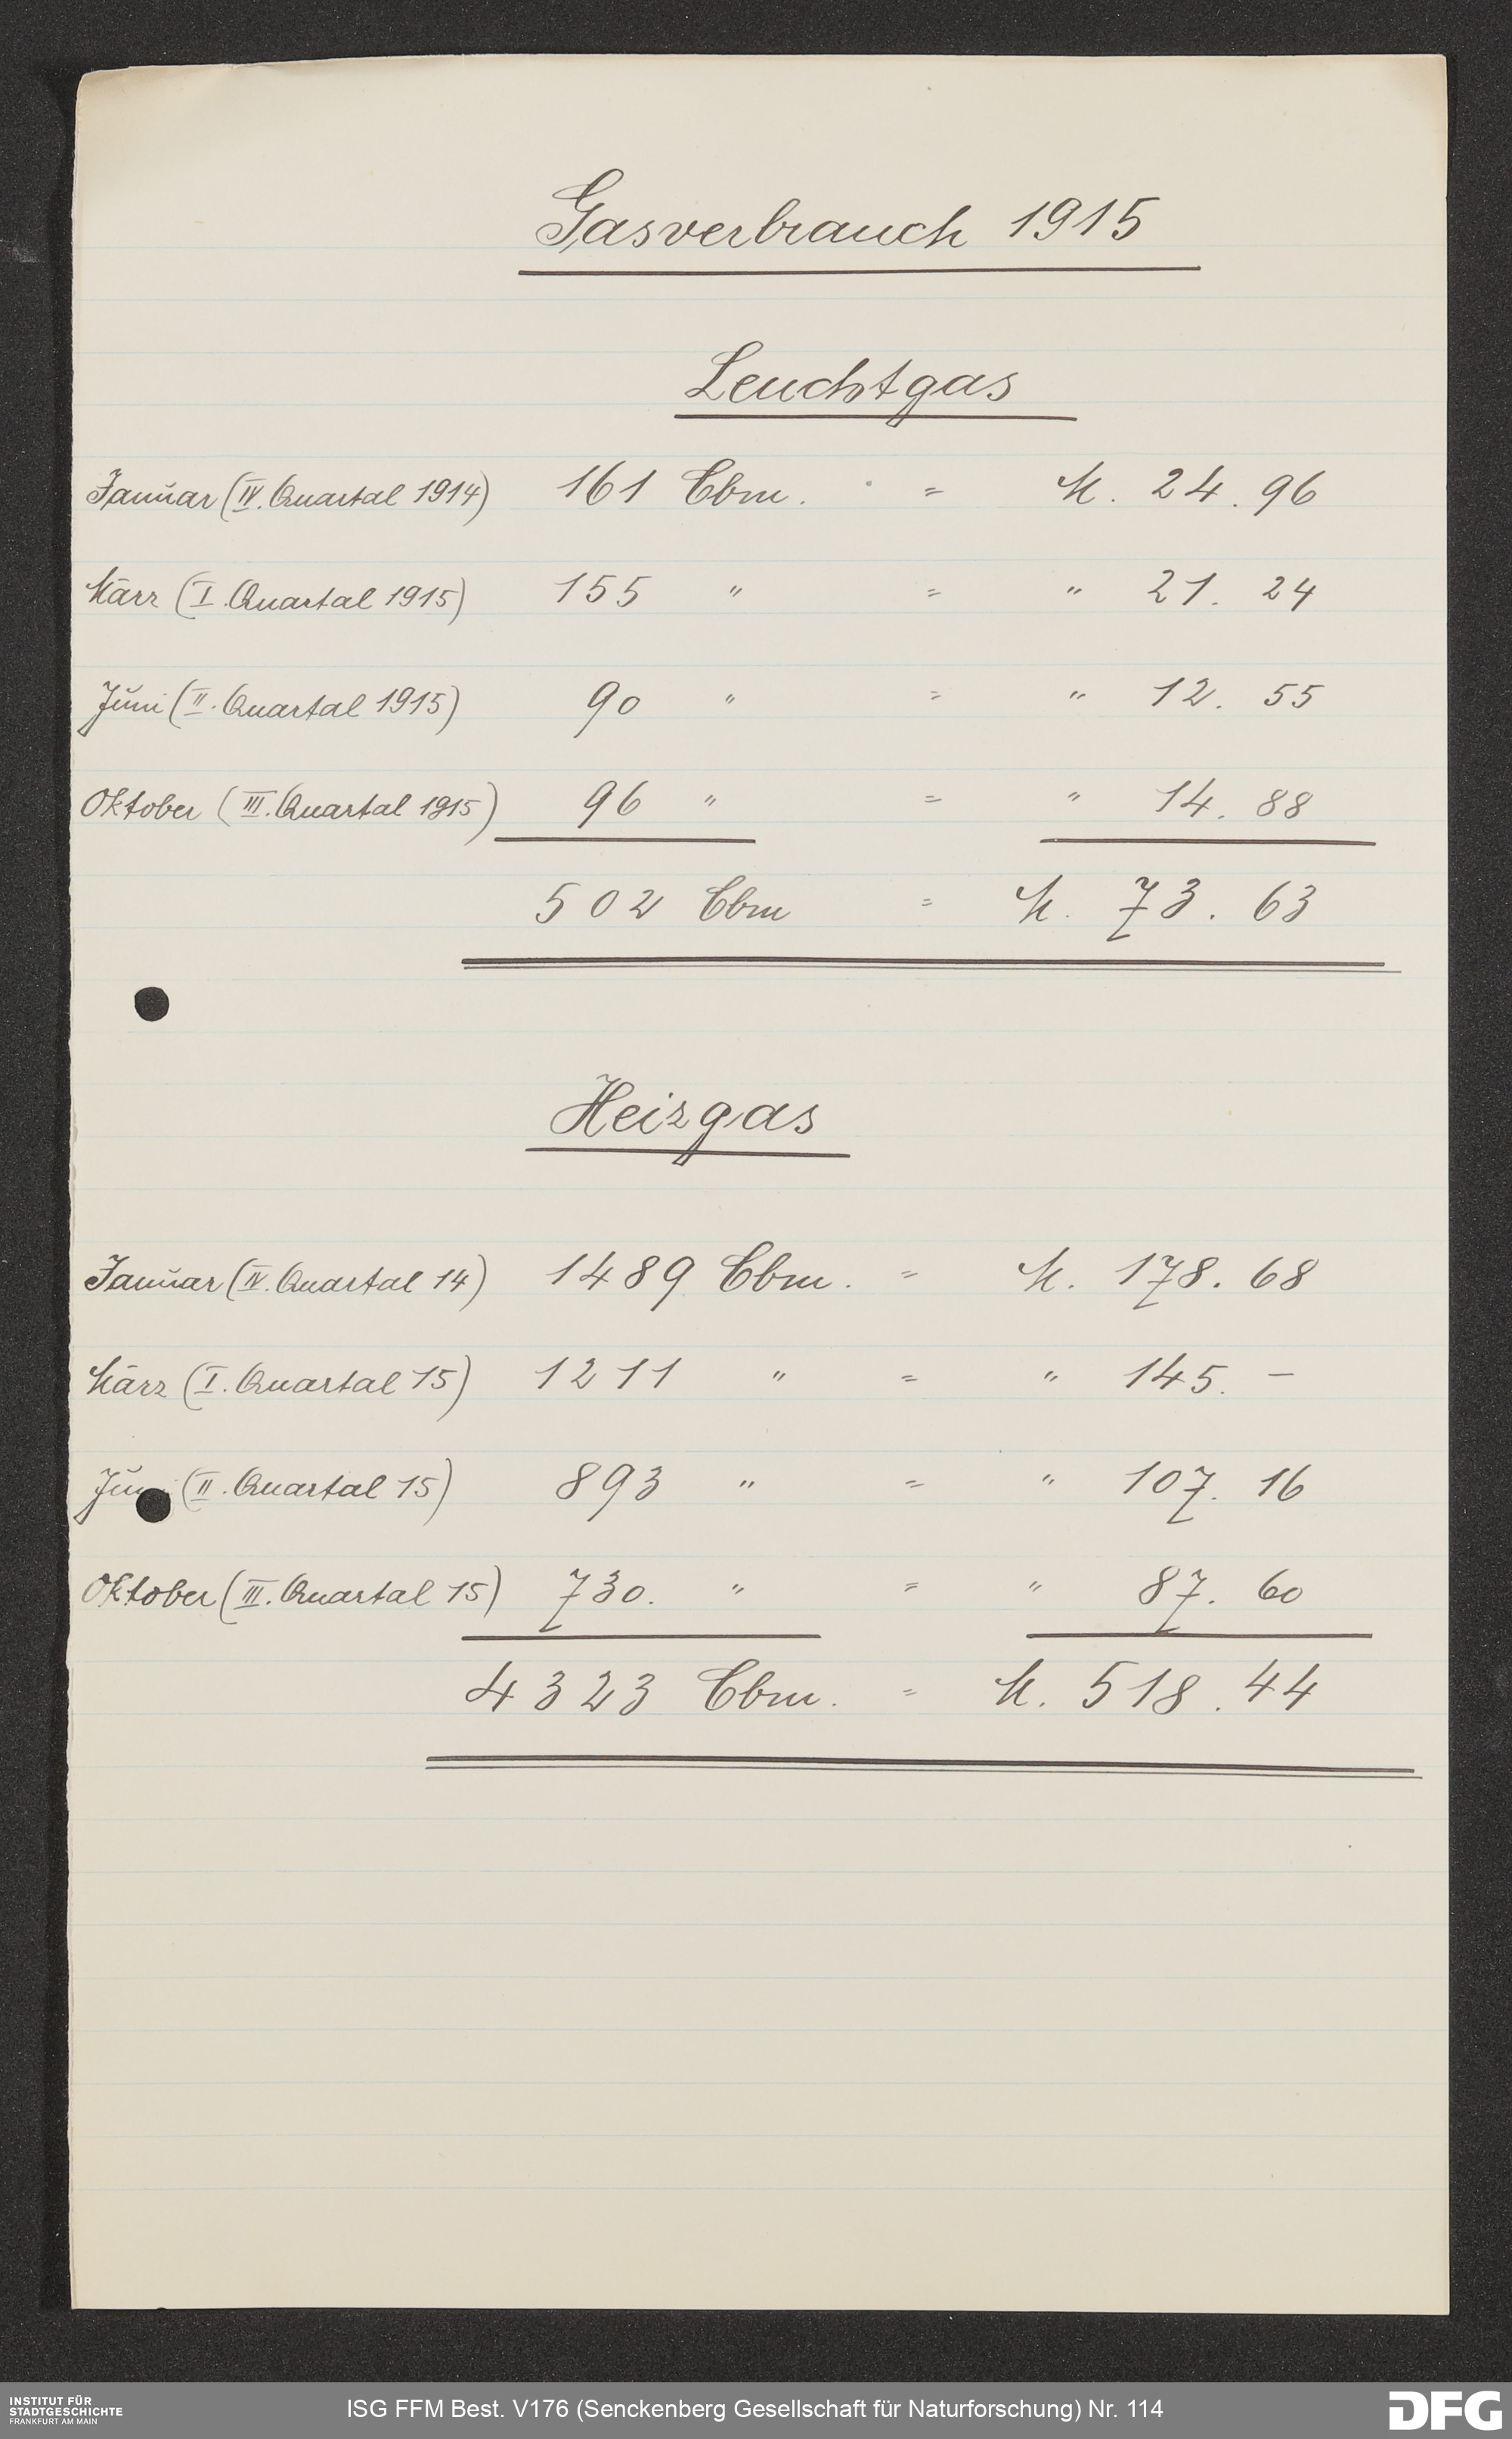 Gasverbrauch 1915
Leuchtgas
Januar (IV. Quartal 1914) 161 Cbm. = M. 24.96
März (I. Quartal 1915) 155 " = " 21.24
Juni (II. Quartal 1915) 90 " = " 12.55
Oktober (III. Quartal 1915) 96 " = " 14.88
502 Cbm = M. 73.63
Heizgas
Januar (IV. Quartal 14) 1489 Cbm. = M. 178.68
März (I. Quartal 15) 1211 " = " 145. –
Juni (II. Quartal 15) 893 " = " 107.16
Oktober (III. Quartal 15) 730. " = " 87.60
4323 Cbm. = M. 518.44
INSTITUT FÜR
STADTGESCHICHTE
FRANKFURT AM MAIN
ISG FFM Best. V176 (Senckenberg Gesellschaft für Naturforschung) Nr. 114
DFG